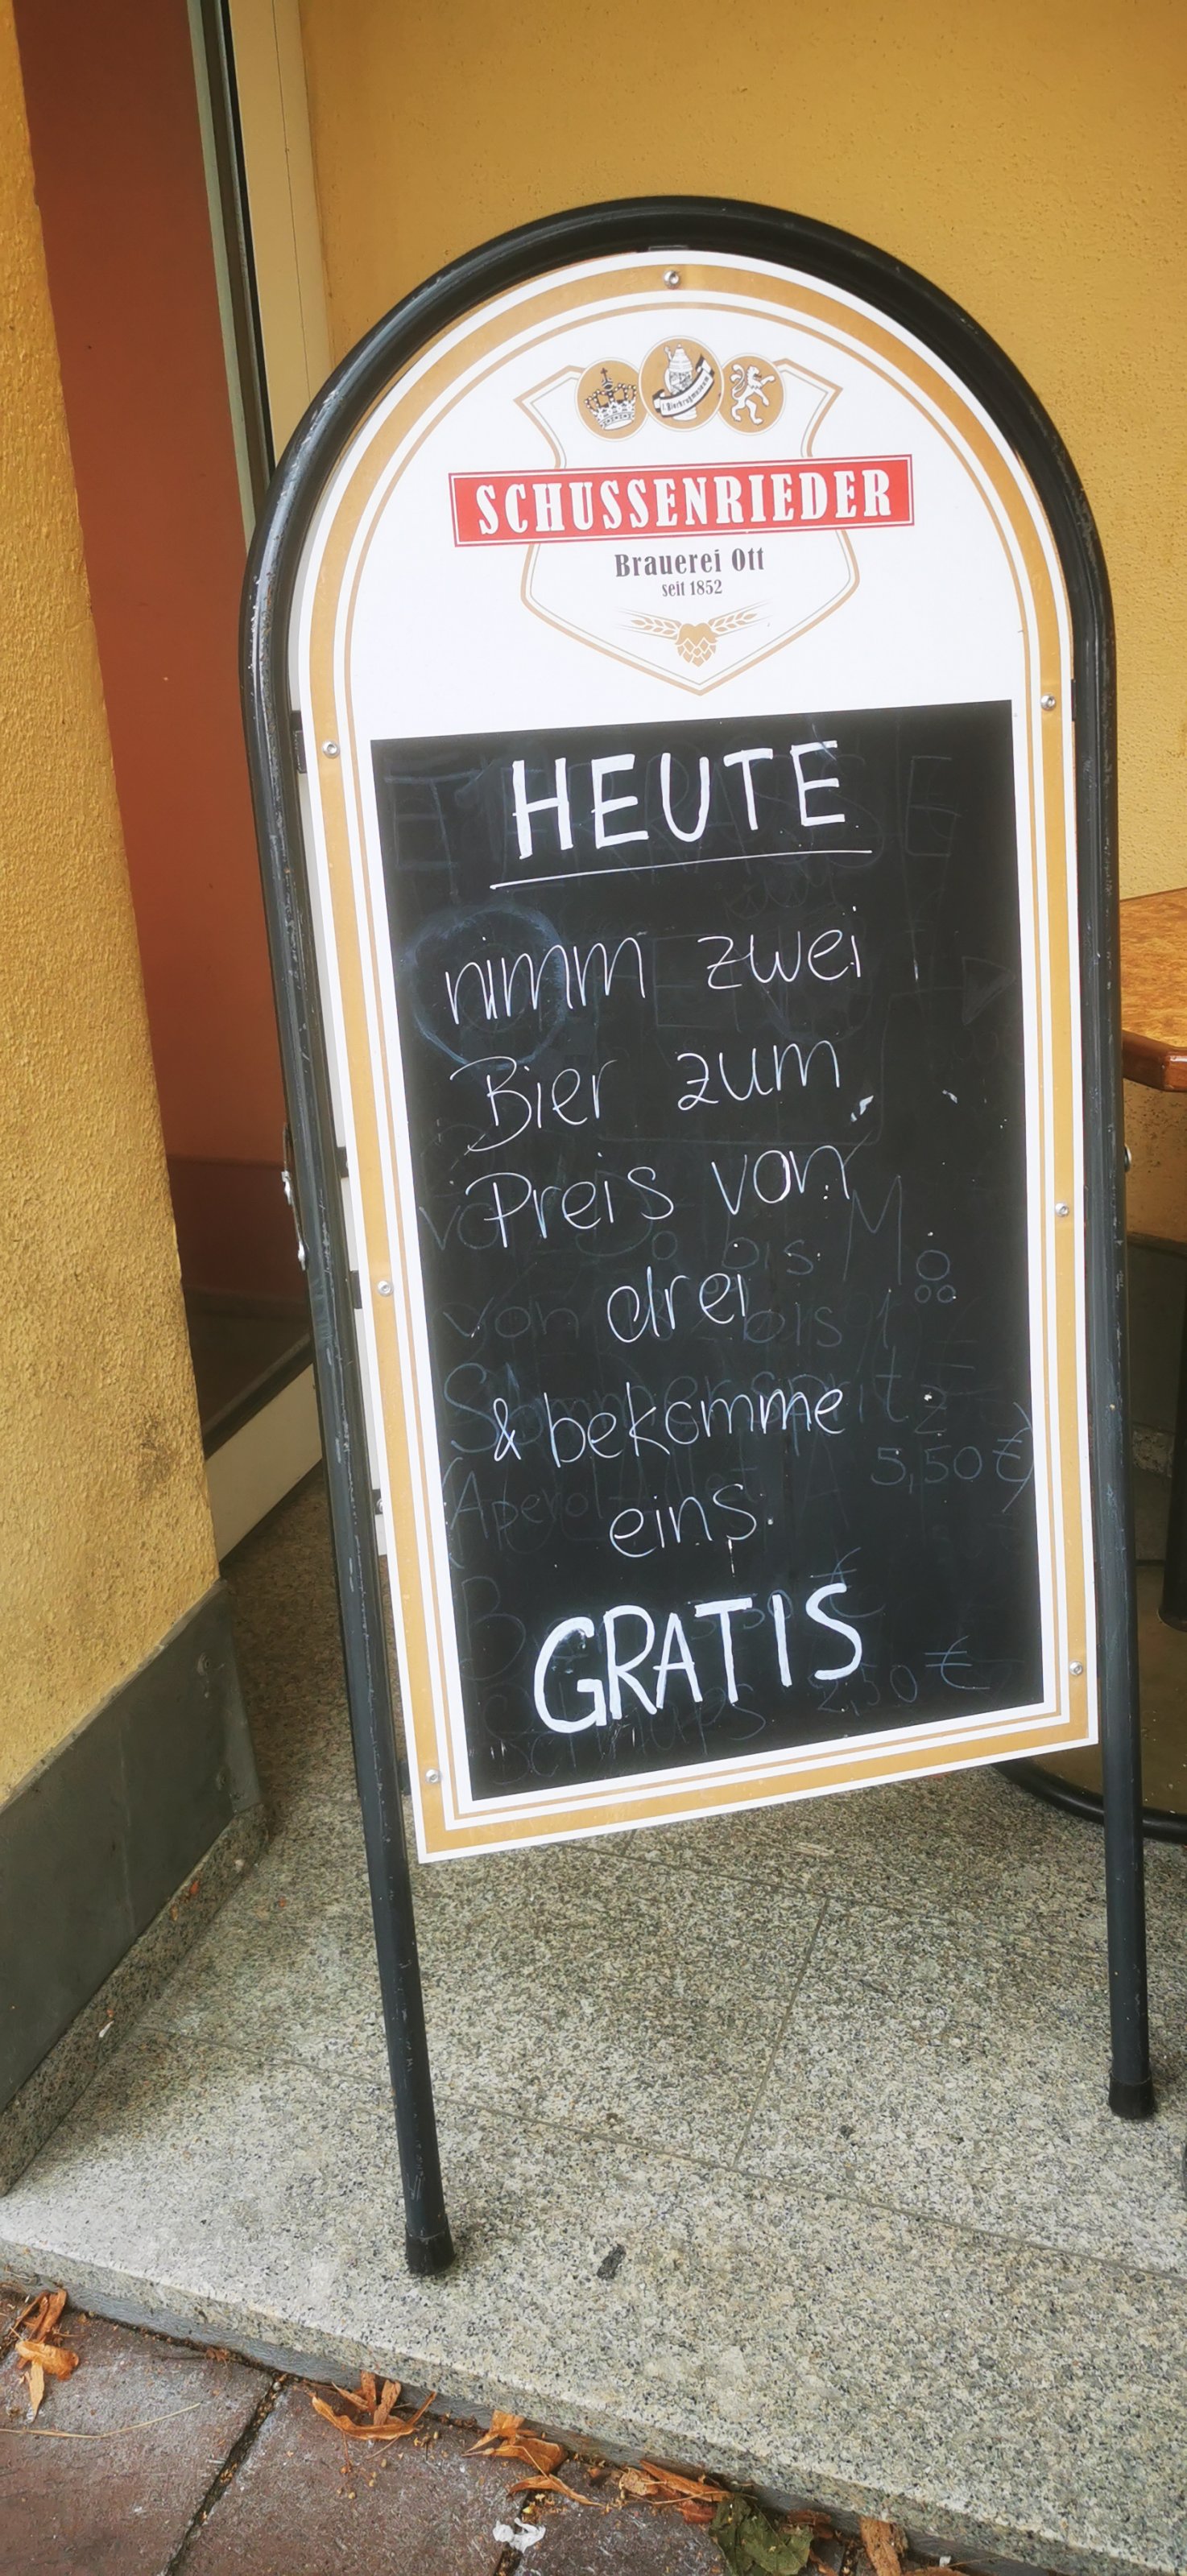 Bierkrugmuseum
SCHUSSENRIEDER
Brauerei Ott
seit 1852
HEUTE
nimm zwei
Bier zum
Preis von
drei
& bekomme
eins
GRATIS
5,50 €
2,50 €